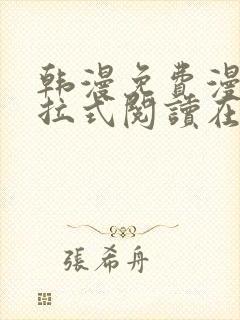 韩漫免费漫
拉式閱讀在
張希舟